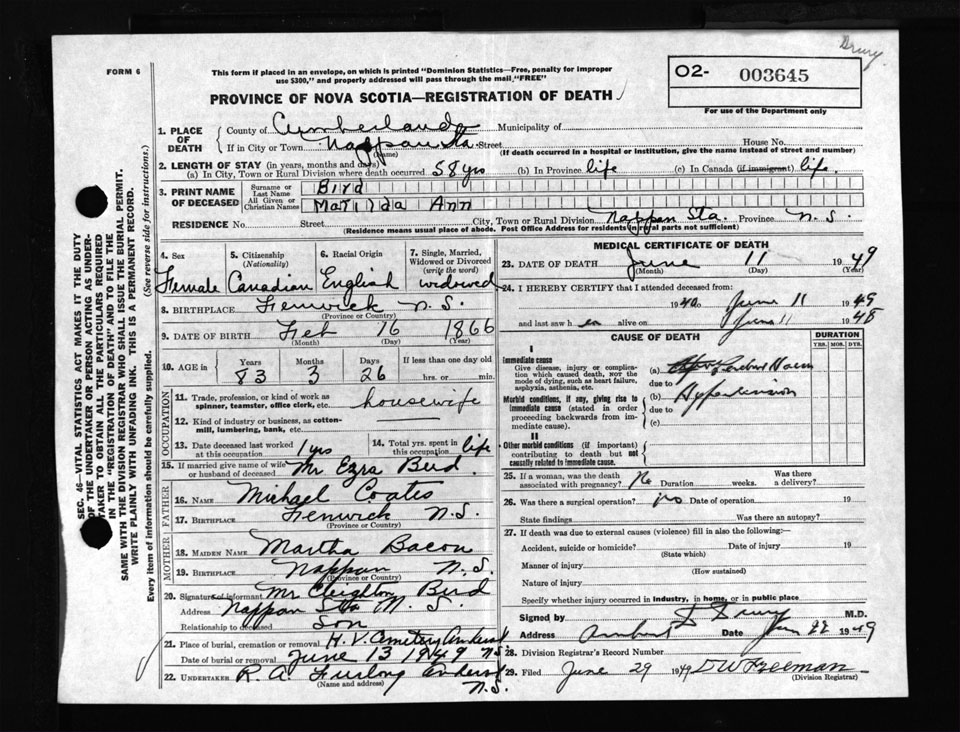 Drury
FORM 6
This form if placed in an envelope, on which is printed "Dominion Statistics—Free, penalty for improper
use $300," and properly addressed will pass through the mail, "FREE"
O2- 003645
For use of the Department only
PROVINCE OF NOVA SCOTIA—REGISTRATION OF DEATH
1. PLACE OF DEATH
County of Cumberland Municipality of
If in City or Town Nappan Sta. Street House No.
(Name) (If death occurred in a hospital or institution, give the name instead of street and number)
2. LENGTH OF STAY (in years, months and days)
(a) In City, Town or Rural Division where death occurred 58 yrs (b) In Province life (c) In Canada (if immigrant) life.
3. PRINT NAME OF DECEASED
Surname or Last Name Bird
All Given or Christian Names Matilda Ann
RESIDENCE No. Street City, Town or Rural Division Nappan Sta. Province N.S.
(Residence means usual place of abode. Post Office Address for residents in rural parts not sufficient)
4. Sex 5. Citizenship (Nationality) 6. Racial Origin 7. Single, Married, Widowed or Divorced (write the word)
Female Canadian English widowed
8. BIRTHPLACE Fenwick N.S.
(Province or Country)
9. DATE OF BIRTH Feb 16 1866
(Month) (Day) (Year)
10. AGE in Years Months Days If less than one day old
83 3 26 hrs. or min.
OCCUPATION
11. Trade, profession, or kind of work as
spinner, teamster, office clerk, etc. housewife
12. Kind of industry or business, as cotton-
mill, lumbering, bank, etc.
13. Date deceased last worked
at this occupation 1 yrs
14. Total yrs. spent in
this occupation life
15. If married give name of wife
or husband of deceased Mr Ezra Bird.
FATHER
16. NAME Michael Coates
17. BIRTHPLACE Fenwick N.S.
(Province or Country)
MOTHER
18. MAIDEN NAME Martha Bacon
19. BIRTHPLACE Nappan N.S.
(Province or Country)
20. Signature of informant Mr Cleighton Bird
Address Nappan Sta N.S.
Relationship to deceased Son
21. Place of burial, cremation or removal H.V. Cemetery Amherst
Date of burial or removal June 13 1949 N.S.
22. UNDERTAKER R. A. Furlong Amherst
(Name and address) N.S.
MEDICAL CERTIFICATE OF DEATH
23. DATE OF DEATH June 11 1949
(Month) (Day) (Year)
24. I HEREBY CERTIFY that I attended deceased from:
1940 to June 11 1949
and last saw her alive on June 11 1948
CAUSE OF DEATH
DURATION
YRS. MOS. DYS.
I
Immediate cause
Give disease, injury or complica-
tion which caused death, not the
mode of dying, such as heart failure,
asphyxia, asthenia, etc.
(a) Cerebral Haem
due to
Morbid conditions, if any, giving rise to
immediate cause (stated in order
proceeding backwards from im-
mediate cause).
(b) Hypertension
due to
(c)
II
Other morbid conditions (if important)
contributing to death but not
causally related to immediate cause.
25. If a woman, was the death
associated with pregnancy? No Duration weeks. Was there
a delivery?
26. Was there a surgical operation? no Date of operation 19
State findings Was there an autopsy?
27. If death was due to external causes (violence) fill in also the following:—
Accident, suicide or homicide? Date of injury 19
(State which)
Manner of injury
(How sustained)
Nature of injury
Specify whether injury occurred in industry, in home, or in public place
Signed by D Drury M.D.
Address Amherst Date Jun 22 1949
28. Division Registrar's Record Number
29. Filed June 29 1949 D W Freeman
(Division Registrar)
SEC. 46—VITAL STATISTICS ACT MAKES IT THE DUTY
OF THE UNDERTAKER OR PERSON ACTING AS UNDER-
TAKER TO OBTAIN ALL THE PARTICULARS REQUIRED
IN THE "REGISTRATION OF DEATH" AND TO FILE THE
SAME WITH THE DIVISION REGISTRAR WHO SHALL ISSUE THE BURIAL PERMIT.
WRITE PLAINLY WITH UNFADING INK. THIS IS A PERMANENT RECORD.
Every item of information should be carefully supplied. (See reverse side for instructions.)